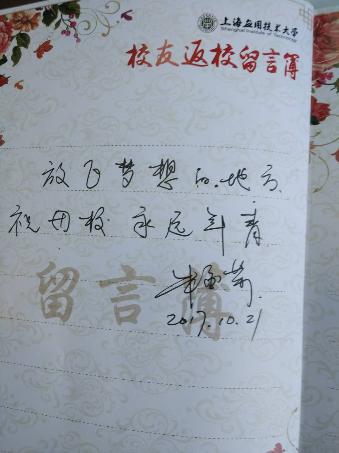 上海应用技术大学
Shanghai Institute of Technology
校友返校留言簿
放飞梦想的地方
祝母校永远年青
留言簿
2017.10.21